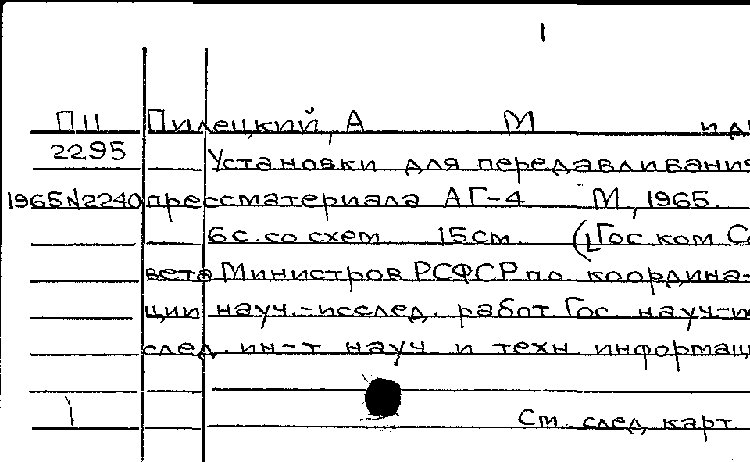 1
П11 Пилецкий, А М и др
2295 Установки для передавливания
1965№2240 прессматериала АГ-4 М, 1965.
6с. со схем 15см. (Гос ком Со
вета Министров РСФСР по координа-
ции науч.-исслед. работ Гос науч-ис
след. ин-т науч и техн информац
1 См. след карт